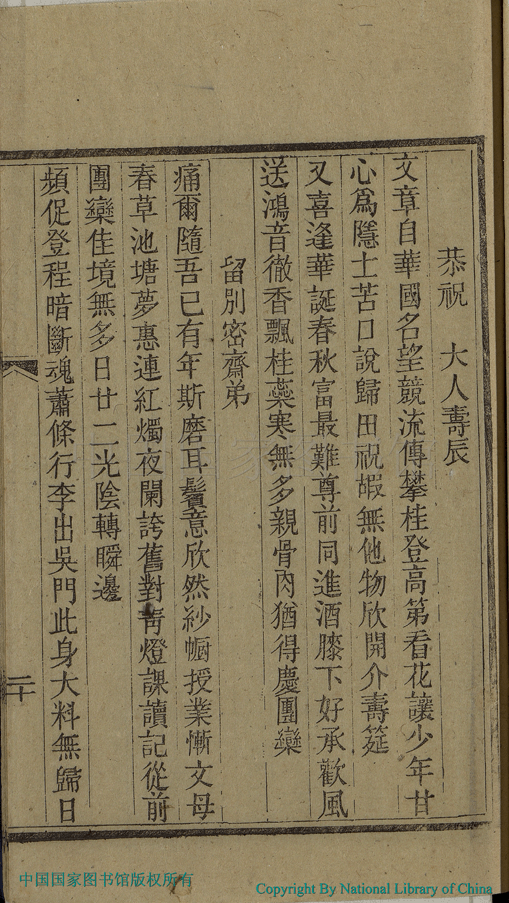 恭祝　大人壽辰
文章自華國名望競流傳攀桂登高第看花讓少年甘
心爲隱士苦口說歸田祝嘏無他物欣開介壽筵
又喜逢華誕春秋富最難尊前同進酒膝下好承歡風
送鴻音徹香飄桂蘂寒無多親骨肉猶得慶團欒
留別密齋弟
痛爾隨吾已有年斯磨耳鬢意欣然紗幮授業慚文母
春草池塘夢惠連紅燭夜闌誇舊對靑燈課讀記從前
團欒佳境無多日廿二光陰轉瞬邊
頻促登程暗斷魂蕭條行李出吳門此身大料無歸日
二十
中国国家图书馆版权所有
Copyright By National Library of China